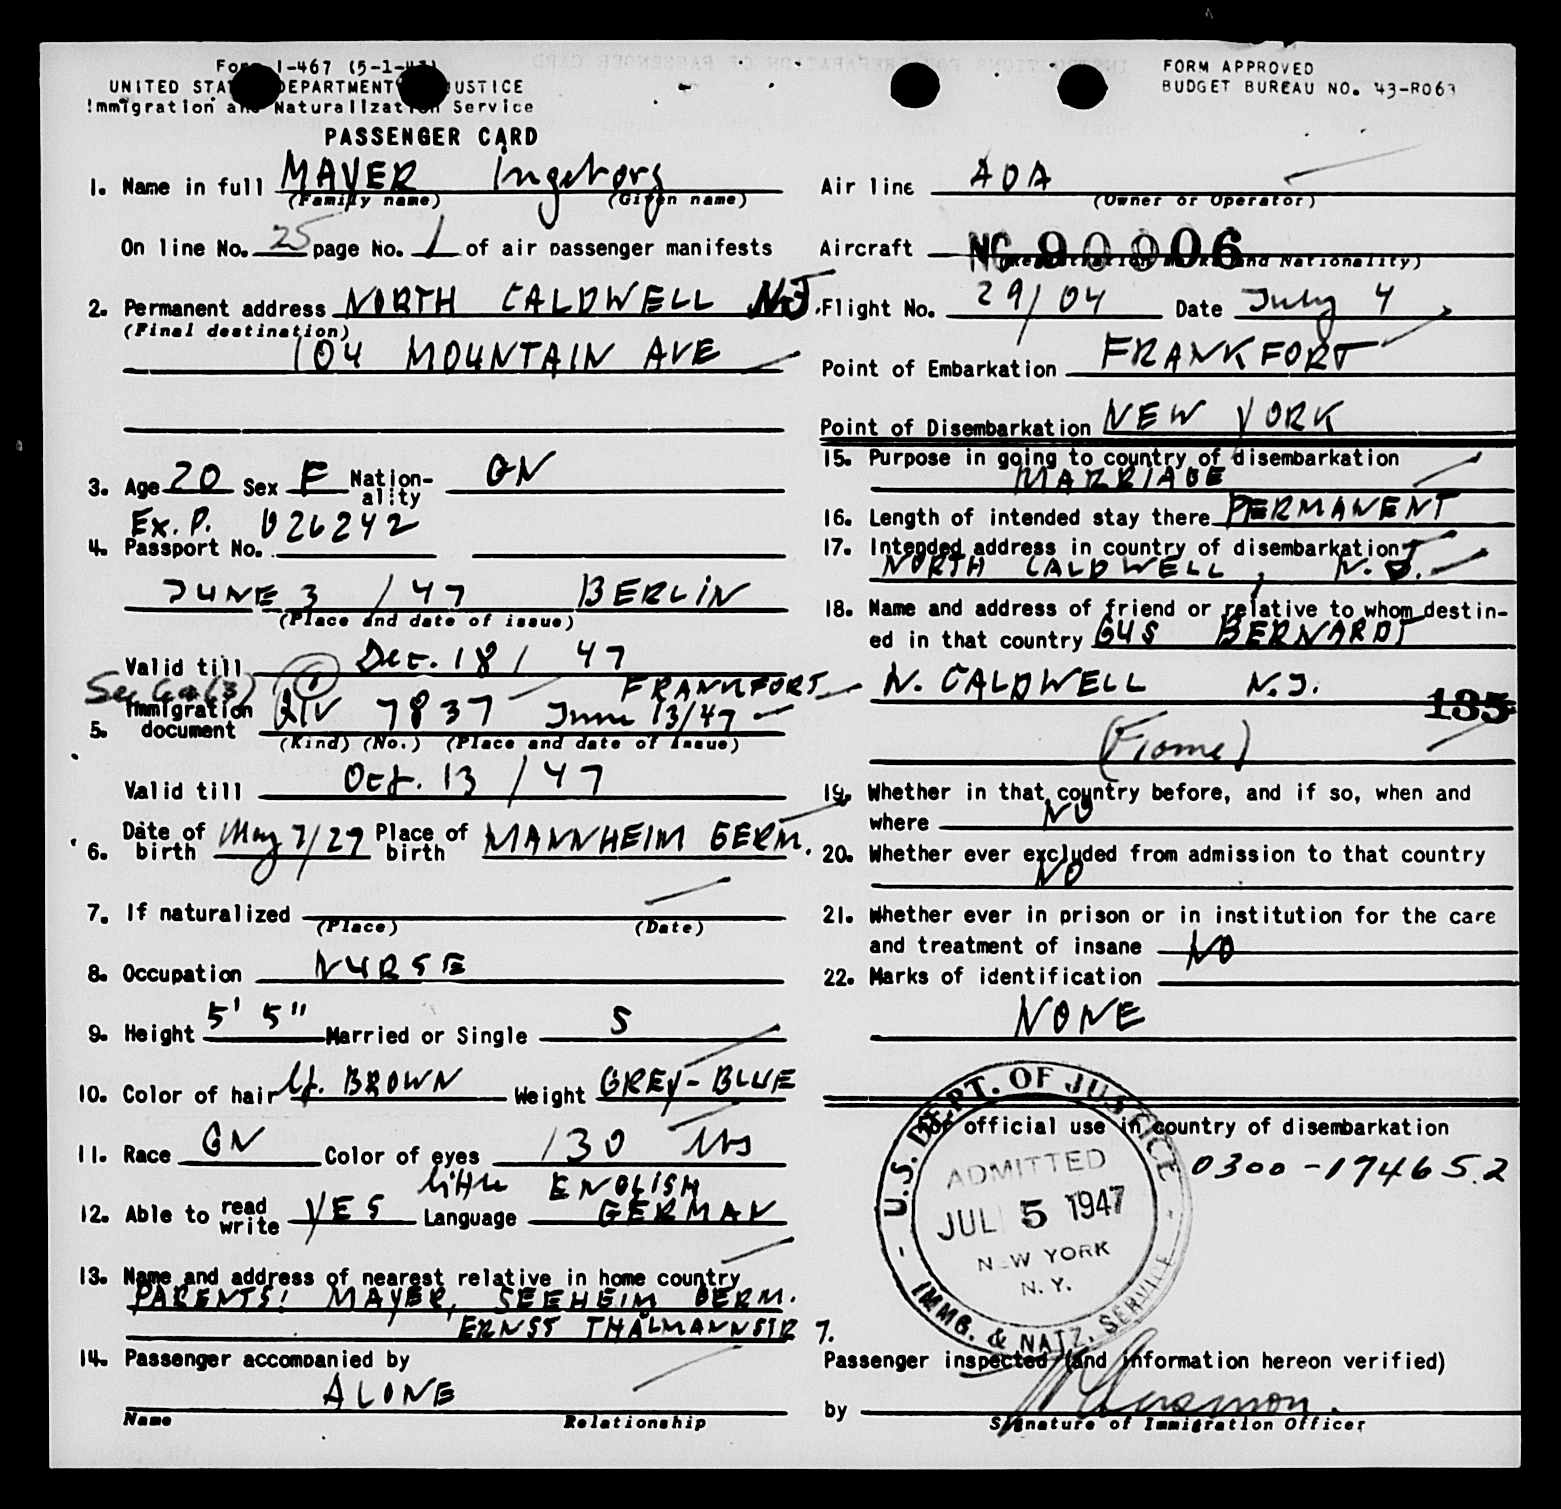 Form I-467 (5-1-43)
UNITED STATES DEPARTMENT OF JUSTICE
Immigration and Naturalization Service
PASSENGER CARD
1. Name in full MAYER Ingeborg
(Family name) (Given name)
On line No. 25 page No. 1 of air passenger manifests
2. Permanent address NORTH CALDWELL N.J.
(Final destination)
104 MOUNTAIN AVE
3. Age 20 Sex F Nationality GN
Ex. P. 026242
4. Passport No.
JUNE 3 / 47 BERLIN
(Place and date of issue)
Valid till Dec. 18 / 47
Sec 6a(3) FRANKFORT
5. Immigration document QIV 7837 June 13/47
(Kind) (No.) (Place and date of issue)
Valid till Oct. 13 / 47
6. Date of birth May 7/27 Place of birth MANNHEIM GERM.
7. If naturalized
(Place) (Date)
8. Occupation NURSE
9. Height 5' 5" Married or Single S
10. Color of hair lt. BROWN Weight GREY-BLUE
11. Race GN Color of eyes 130 lbs
little ENGLISH
12. Able to read write YES Language GERMAN
13. Name and address of nearest relative in home country
PARENTS: MAYER, SEEHEIM GERM.
ERNST THÄLMANNSTR 7.
14. Passenger accompanied by
ALONE
Name Relationship
FORM APPROVED
BUDGET BUREAU NO. 43-R063
Air line AOA
(Owner or Operator)
Aircraft NC 90906
(Registration Marks and Nationality)
Flight No. 29/04 Date July 4
Point of Embarkation FRANKFORT
Point of Disembarkation NEW YORK
15. Purpose in going to country of disembarkation
MARRIAGE
16. Length of intended stay there PERMANENT
17. Intended address in country of disembarkation
NORTH CALDWELL, N.J.
18. Name and address of friend or relative to whom destin-
ed in that country GUS BERNARDT
N. CALDWELL N.J.
135
19. Whether in that country before, and if so, when and
where NO
20. Whether ever excluded from admission to that country
NO
21. Whether ever in prison or in institution for the care
and treatment of insane NO
22. Marks of identification
NONE
For official use in country of disembarkation
0300-174652
U.S. DEPT. OF JUSTICE
ADMITTED
JUL 5 1947
NEW YORK
N.Y.
IMMG. & NATZ. SERVICE
Passenger inspected (and information hereon verified)
by
Signature of Immigration Officer